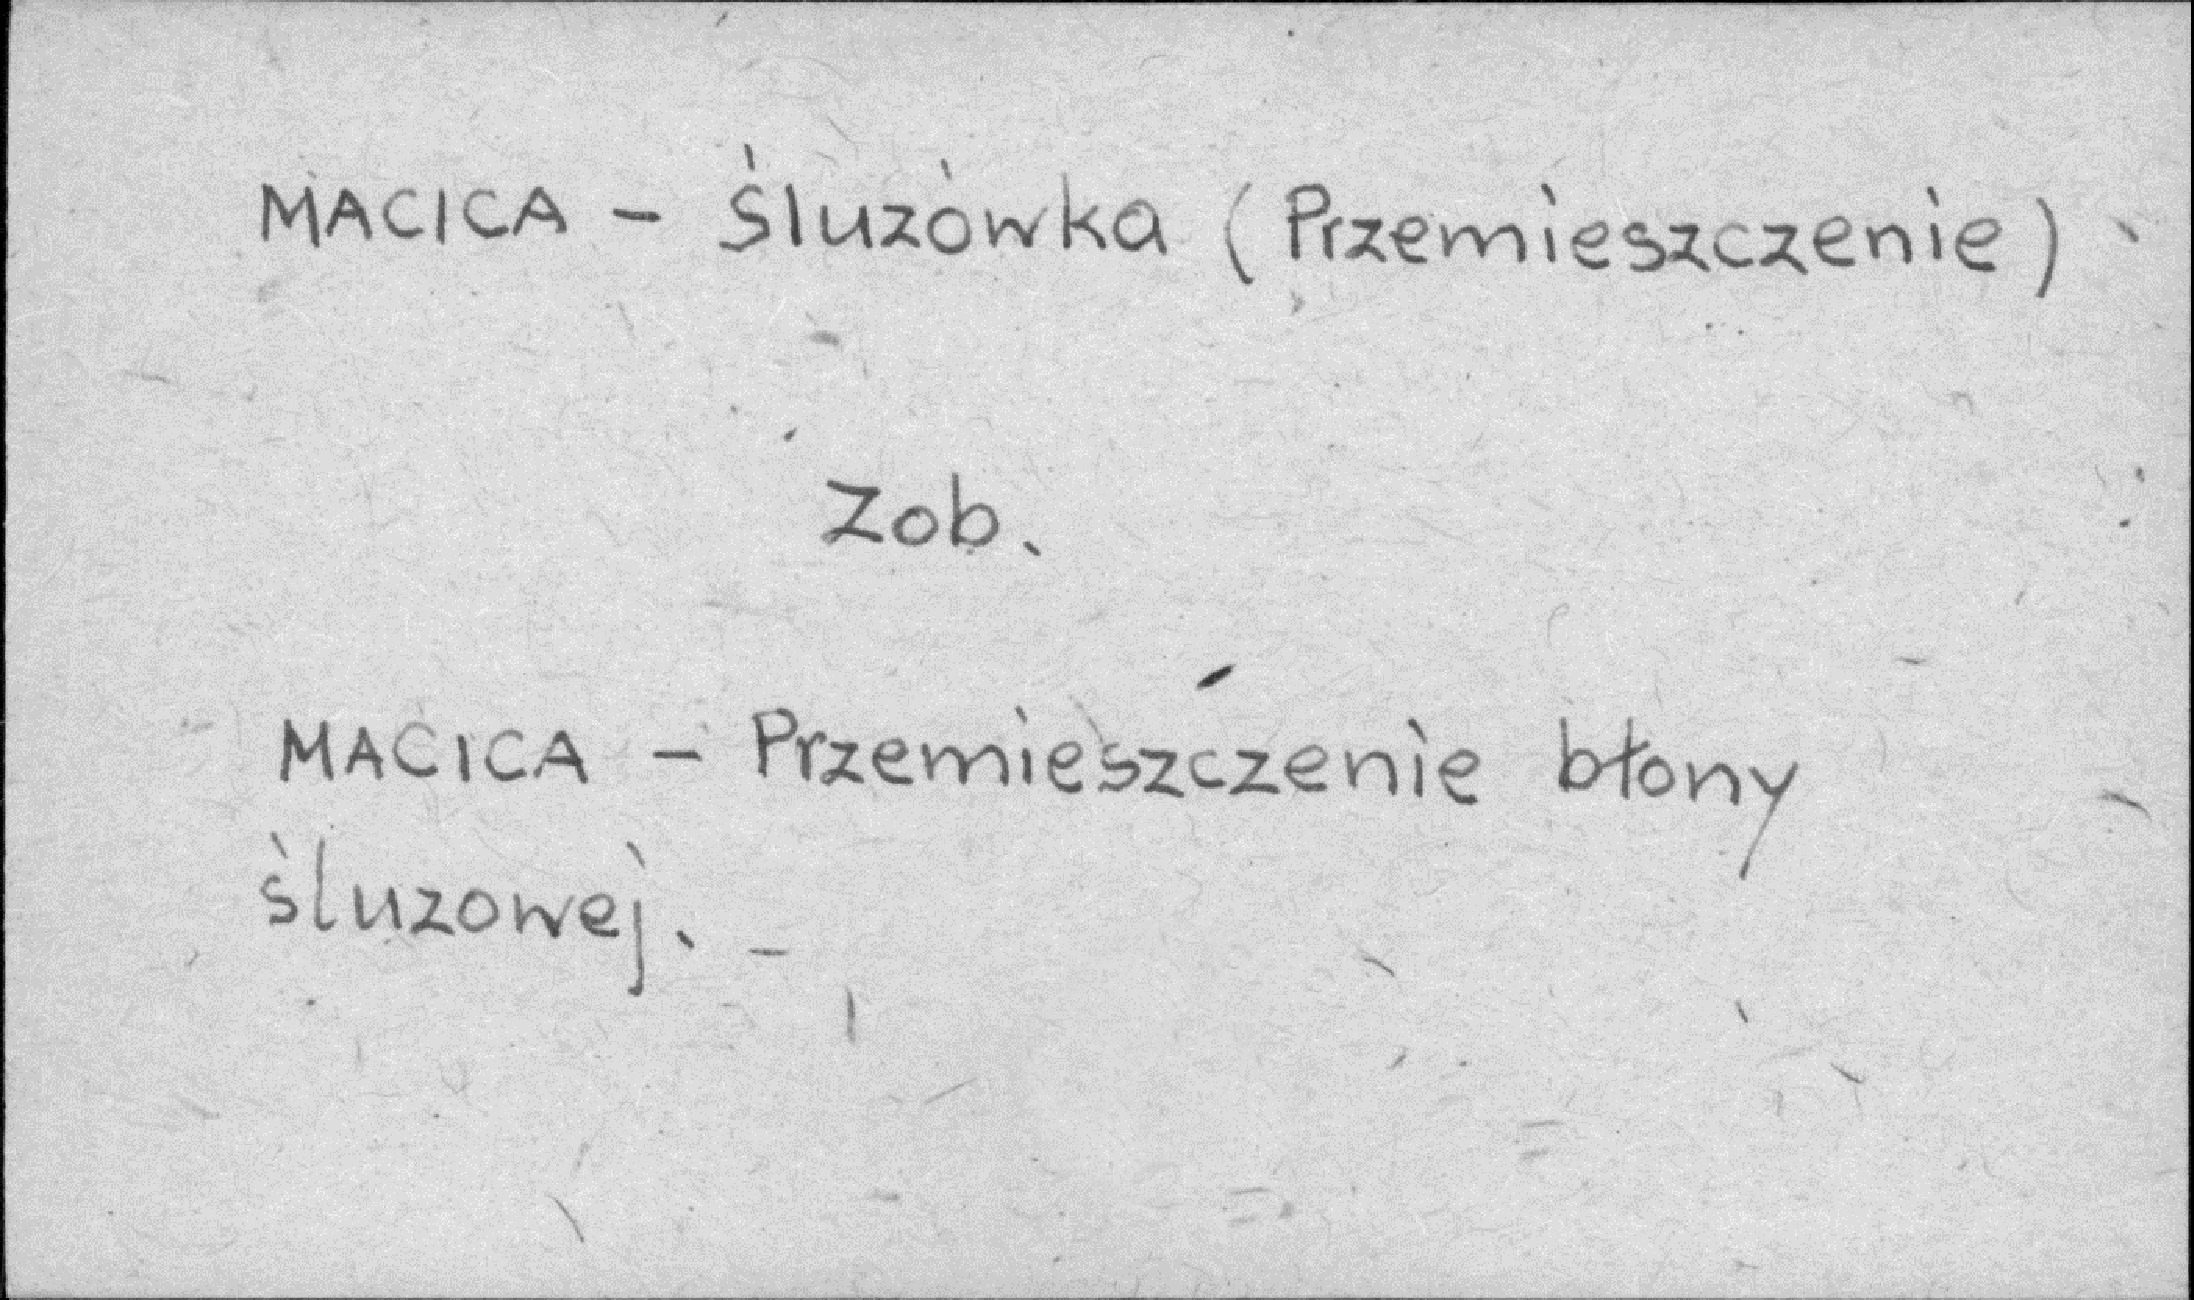 MACICA - Śluzówka (Przemieszczenie)
Zob.
MACICA - Przemieszczenie błony
śluzowej. -